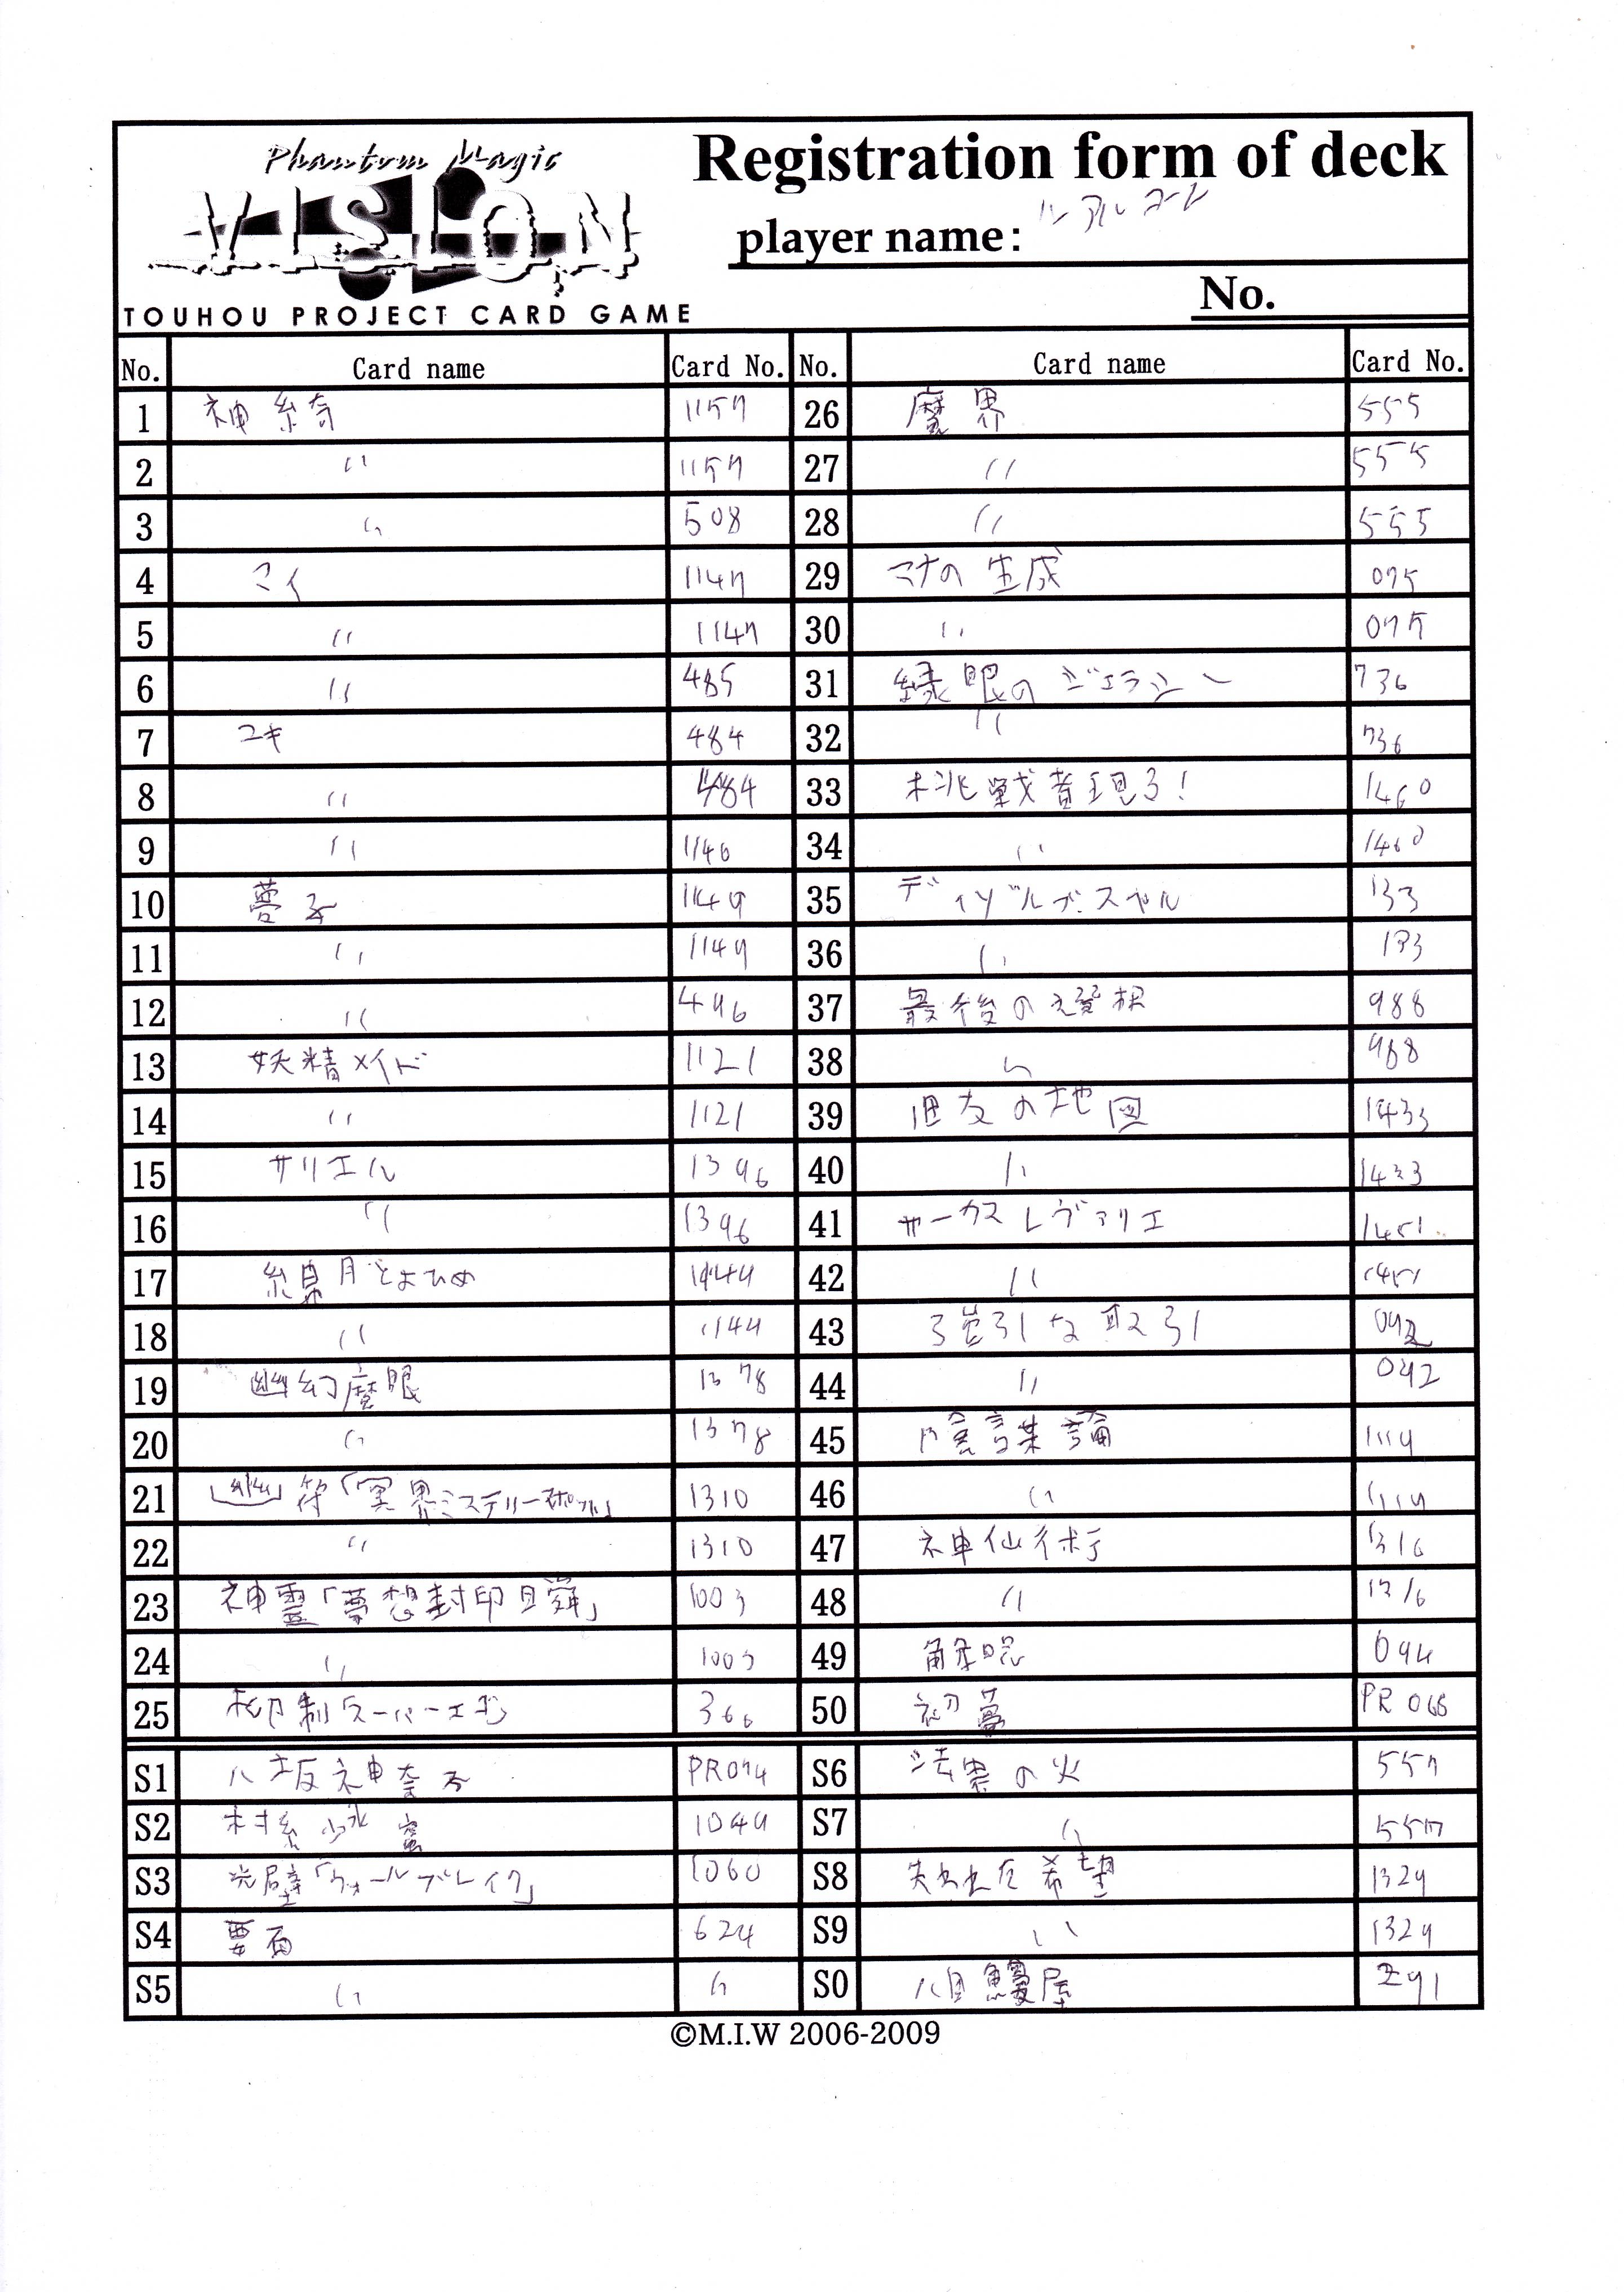 Phantom Magic
VISION
TOUHOU PROJECT CARD GAME
Registration form of deck
player name:
No.
No. Card name Card No. No. Card name Card No.
1 神綺 1157 26 魔界 555
2 〃 1157 27 〃 555
3 〃 508 28 〃 555
4 マイ 1147 29 マナの生成 075
5 〃 1147 30 〃 075
6 〃 485 31 緑眼のジェラシー 736
7 ユキ 484 32 〃 736
8 〃 484 33 挑戦者現る! 1460
9 〃 1146 34 〃 1460
10 夢子 1149 35 ディゾルブスペル 133
11 〃 1149 36 〃 133
12 〃 496 37 最後の審判 988
13 妖精メイド 1121 38 〃 988
14 〃 1121 39 旧友の地図 1433
15 サリエル 1396 40 〃 1433
16 〃 1396 41 サーカスレヴァリエ 1451
17 綿月とよひめ 1144 42 〃 1451
18 〃 1144 43 強引な取引 092
19 幽幻魔眼 1378 44 〃 092
20 〃 1378 45 陰謀論 1119
21 幽符「冥界ミステリースポット」 1310 46 〃 1119
22 〃 1310 47 神仙術 1316
23 神霊「夢想封印 瞬」 1003 48 〃 1316
24 〃 1003 49 解呪 094
25 抑制 スーパーエゴ 366 50 初夢 PR 068
S1 八坂神奈子 PR074 S6 法界の火 557
S2 村紗水蜜 1049 S7 〃 557
S3 光壁「ウォールブレイク」 1060 S8 失われた希望 1329
S4 要石 624 S9 〃 1329
S5 〃 〃 S0 八目鰻屋 291
©M.I.W 2006-2009